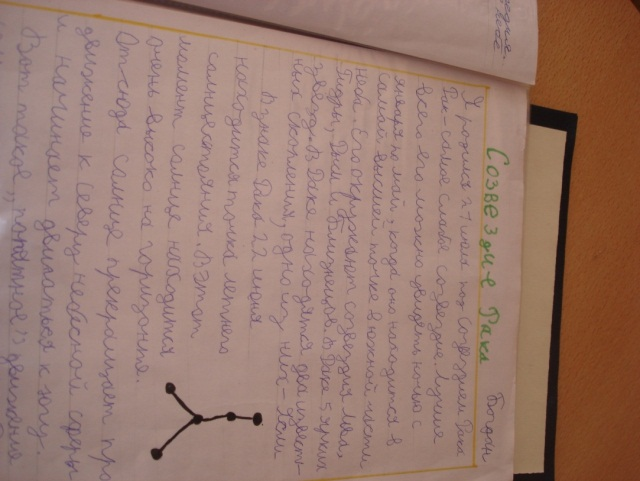 Созвездие Рака
Богдан
Я родился 27 июля под созвездием Рака
Рак - самое слабое созвездие. Лучше
всего его можно увидеть ночью с
января по май, когда оно находится в
самой высшей точке в южной части
неба. Его окружают созвездия Льва,
Гидры, Рыси и Близнецов. В Раке 5 ярких
звёзд. В Раке находятся два извест-
ных скопления, одно из них -
В знаке Рака 22 июня
находится точка летнего
солнцестояния. В этот
момент солнце находится
очень высоко на горизонте.
От-сюда солнце прекращает про
движение к северу небесной сферы
и начинает двигаться к югу.
Вот такое, движение